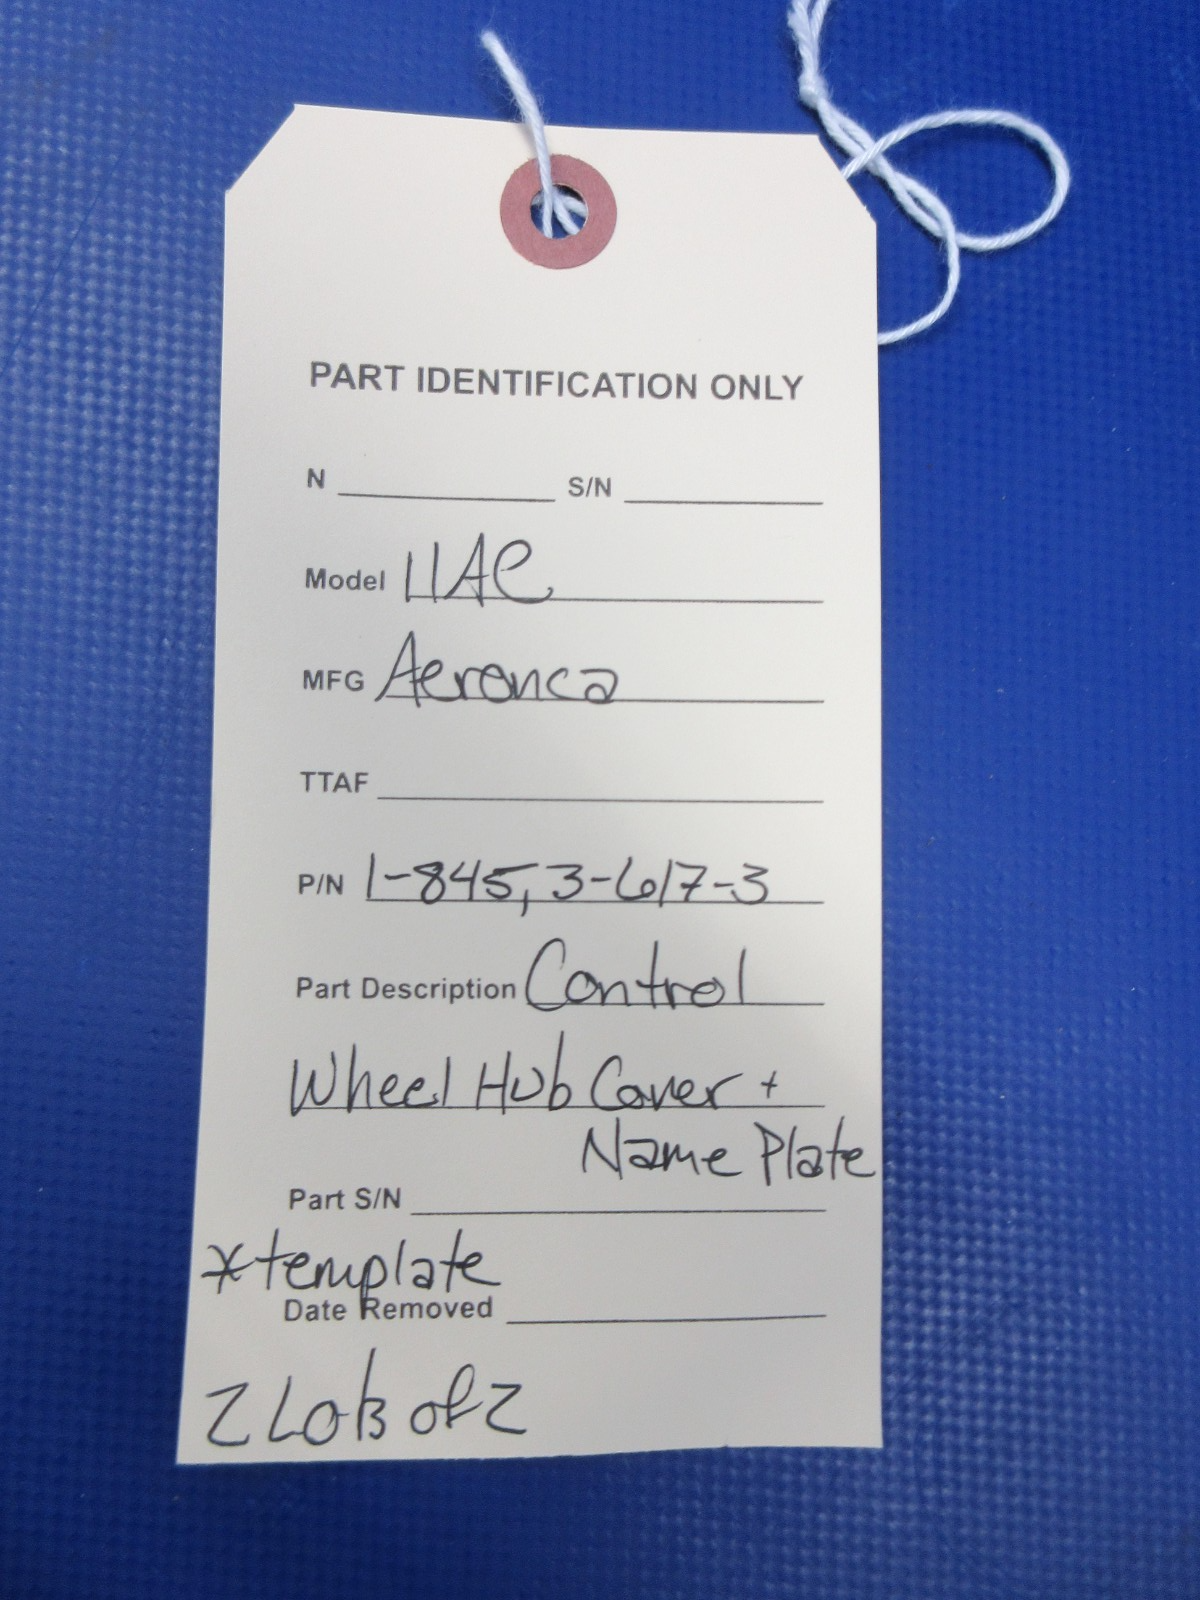 PART IDENTIFICATION ONLY
N S/N
Model 11AC
MFG Aeronca
TTAF
P/N 1-845, 3-617-3
Part Description Control
Wheel Hub Cover +
Name Plate
Part S/N
*template
Date Removed
2 Lots of 2